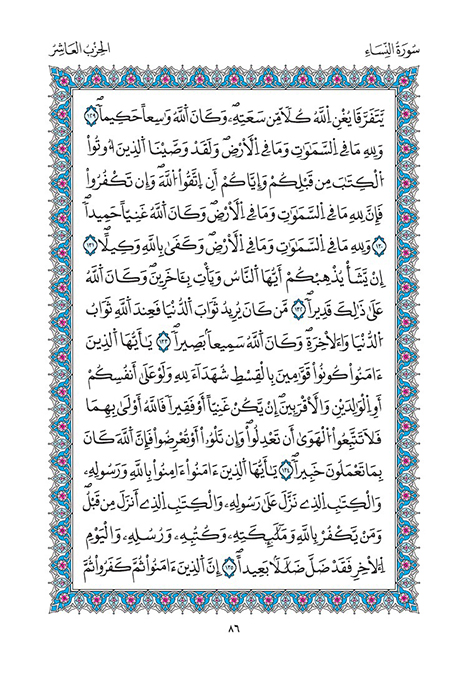 سُورَةُ النِّسَاءِ
الحِزْبُ العَاشِرُ
يَّتَفَرَّقَا يُغْنِ اِ۬للَّهُ كُلّاٗ مِّن سَعَتِهِۦۖ وَكَانَ اَ۬للَّهُ وَٰسِعاً حَكِيماٗۖ ١٢٩
وَلِلهِ مَا فِے اِ۬لسَّمَٰوَٰتِ وَمَا فِے اِ۬لَارْضِۖ وَلَقَدْ وَصَّيْنَا اَ۬لذِينَ أُوتُواْ
اُ۬لْكِتَٰبَ مِن قَبْلِكُمْ وَإِيَّاكُمْ أَنِ اِ۪تَّقُواْ اُ۬للَّهَۖ وَإِن تَكْفُرُواْ
فَإِنَّ لِلهِ مَا فِے اِ۬لسَّمَٰوَٰتِ وَمَا فِے اِ۬لَارْضِۖ وَكَانَ اَ۬للَّهُ غَنِيّاً حَمِيداٗۖ
١٣٠ وَلِلهِ مَا فِے اِ۬لسَّمَٰوَٰتِ وَمَا فِے اِ۬لَارْضِۖ وَكَفَىٰ بِاللَّهِ وَكِيلًاۖ ١٣١
إِنْ يَّشَأْ يُذْهِبْكُمُۥٓ أَيُّهَا اَ۬لنَّاسُ وَيَاتِ بِـَٔاخَرِينَۖ وَكَانَ اَ۬للَّهُ
عَلَىٰ ذَٰلِكَ قَدِيراٗۖ ١٣٢ مَّن كَانَ يُرِيدُ ثَوَابَ اَ۬لدُّنْيَا فَعِندَ اَ۬للَّهِ ثَوَابُ
اُ۬لدُّنْيَا وَالَاخِرَةِۖ وَكَانَ اَ۬للَّهُ سَمِيعاَۢ بَصِيراٗۖ ١٣٣ يَٰٓأَيُّهَا اَ۬لذِينَ
ءَامَنُواْ كُونُواْ قَوَّٰمِينَ بِالْقِسْطِ شُهَدَآءَ لِلهِ وَلَوْ عَلَىٰٓ أَنفُسِكُمُۥٓ
أَوِ اِ۬لْوَٰلِدَيْنِ وَالَاقْرَبِينَۖ إِنْ يَّكُنْ غَنِيّاً اَوْ فَقِيراٗ فَاللَّهُ أَوْلَىٰ بِهِمَا
فَلَا تَتَّبِعُواْ اُ۬لْهَوَىٰٓ أَن تَعْدِلُواْۖ وَإِن تَلْوُۥٓاْ أَوْ تُعْرِضُواْ فَإِنَّ اَ۬للَّهَ كَانَ
بِمَا تَعْمَلُونَ خَبِيراٗۖ ١٣٤ يَٰٓأَيُّهَا اَ۬لذِينَ ءَامَنُوٓاْ ءَامِنُواْ بِاللَّهِ وَرَسُولِهِۦ
وَالْكِتَٰبِ اِ۬لذِے نَزَّلَ عَلَىٰ رَسُولِهِۦ وَالْكِتَٰبِ اِ۬لذِےٓ أَنزَلَ مِن قَبْلُۖ
وَمَنْ يَّكْفُرْ بِاللَّهِ وَمَلَٰٓئِكَتِهِۦ وَكُتُبِهِۦ وَرُسُلِهِۦ وَالْيَوْمِ
اِ۬لَاخِرِ فَقَد ضَّلَّ ضَلَٰلاَۢ بَعِيداًۖ ١٣٥ إِنَّ اَ۬لذِينَ ءَامَنُواْ ثُمَّ كَفَرُواْ ثُمَّ
٨٦